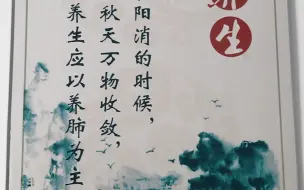 生
阳消的时候，
秋天万物收敛，
养生应以养肺为主